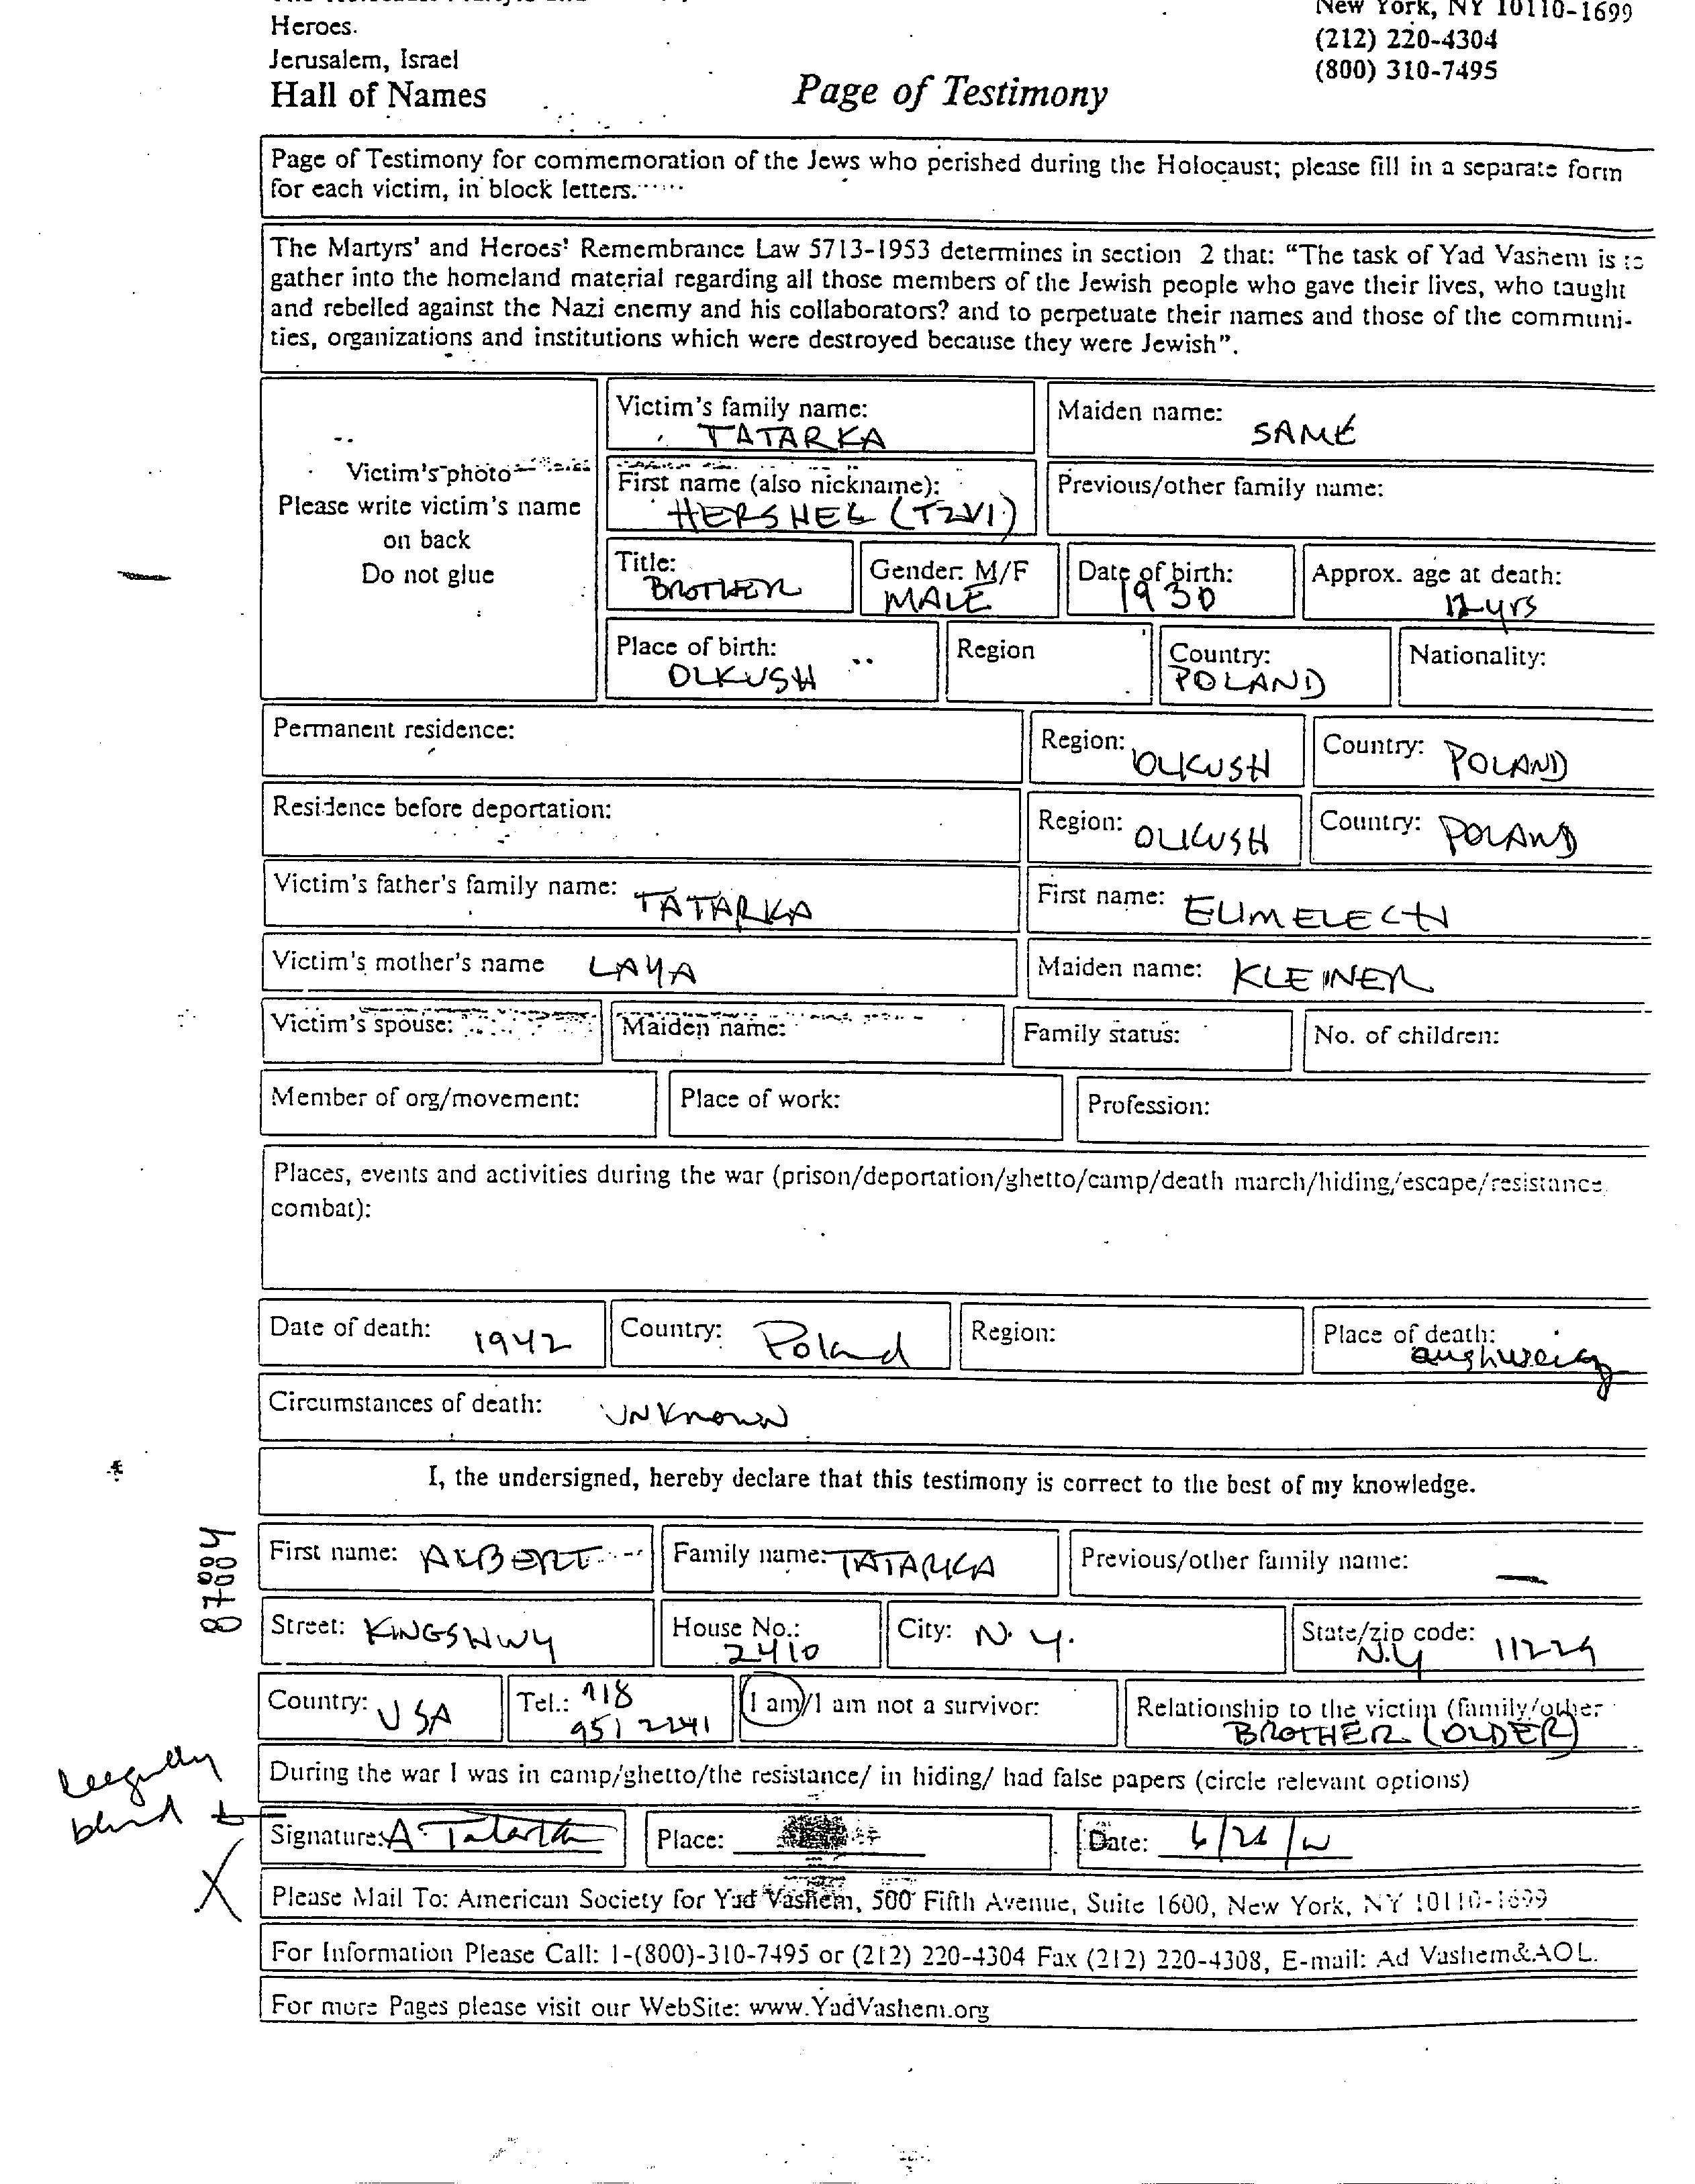 Heroes.
Jerusalem, Israel
Hall of Names
Page of Testimony
New York, NY 10110-1699
(212) 220-4304
(800) 310-7495
Page of Testimony for commemoration of the Jews who perished during the Holocaust; please fill in a separate form
for each victim, in block letters.
The Martyrs' and Heroes' Remembrance Law 5713-1953 determines in section 2 that: "The task of Yad Vashem is to
gather into the homeland material regarding all those members of the Jewish people who gave their lives, who taught
and rebelled against the Nazi enemy and his collaborators? and to perpetuate their names and those of the communi-
ties, organizations and institutions which were destroyed because they were Jewish".
Victim's photo
Please write victim's name
on back
Do not glue
Victim's family name:
TATARKA
Maiden name: SAME
First name (also nickname):
HERSHEL (TZVI)
Previous/other family name:
Title:
BROTHER
Gender: M/F
MALE
Date of birth:
1930
Approx. age at death:
12 yrs
Place of birth:
OLKUSH
Region
Country:
POLAND
Nationality:
Permanent residence:
Region: OLKUSH
Country: POLAND
Residence before deportation:
Region: OLKUSH
Country: POLAND
Victim's father's family name: TATARKA
First name: ELIMELECH
Victim's mother's name LAYA
Maiden name: KLEINER
Victim's spouse:
Maiden name:
Family status:
No. of children:
Member of org/movement:
Place of work:
Profession:
Places, events and activities during the war (prison/deportation/ghetto/camp/death march/hiding/escape/resistance
combat):
Date of death: 1942
Country: Poland
Region:
Place of death:
Circumstances of death: UNKnown
I, the undersigned, hereby declare that this testimony is correct to the best of my knowledge.
87004
First name: ALBERT
Family name: TATARKA
Previous/other family name: —
Street: KINGSHWY
House No.:
2410
City: N.Y.
State/zip code:
N.Y 11229
Country: USA
Tel.: 718
951 2241
I am/I am not a survivor:
Relationship to the victim (family/other
BROTHER (OLDER)
During the war I was in camp/ghetto/the resistance/ in hiding/ had false papers (circle relevant options)
Leegully
blind
Signature: A. Tatarka
Place:
Date:
X
Please Mail To: American Society for Yad Vashem, 500 Fifth Avenue, Suite 1600, New York, NY 10110-1699
For Information Please Call: 1-(800)-310-7495 or (212) 220-4304 Fax (212) 220-4308, E-mail: Ad Vashem&AOL.
For more Pages please visit our WebSite: www.YadVashem.org